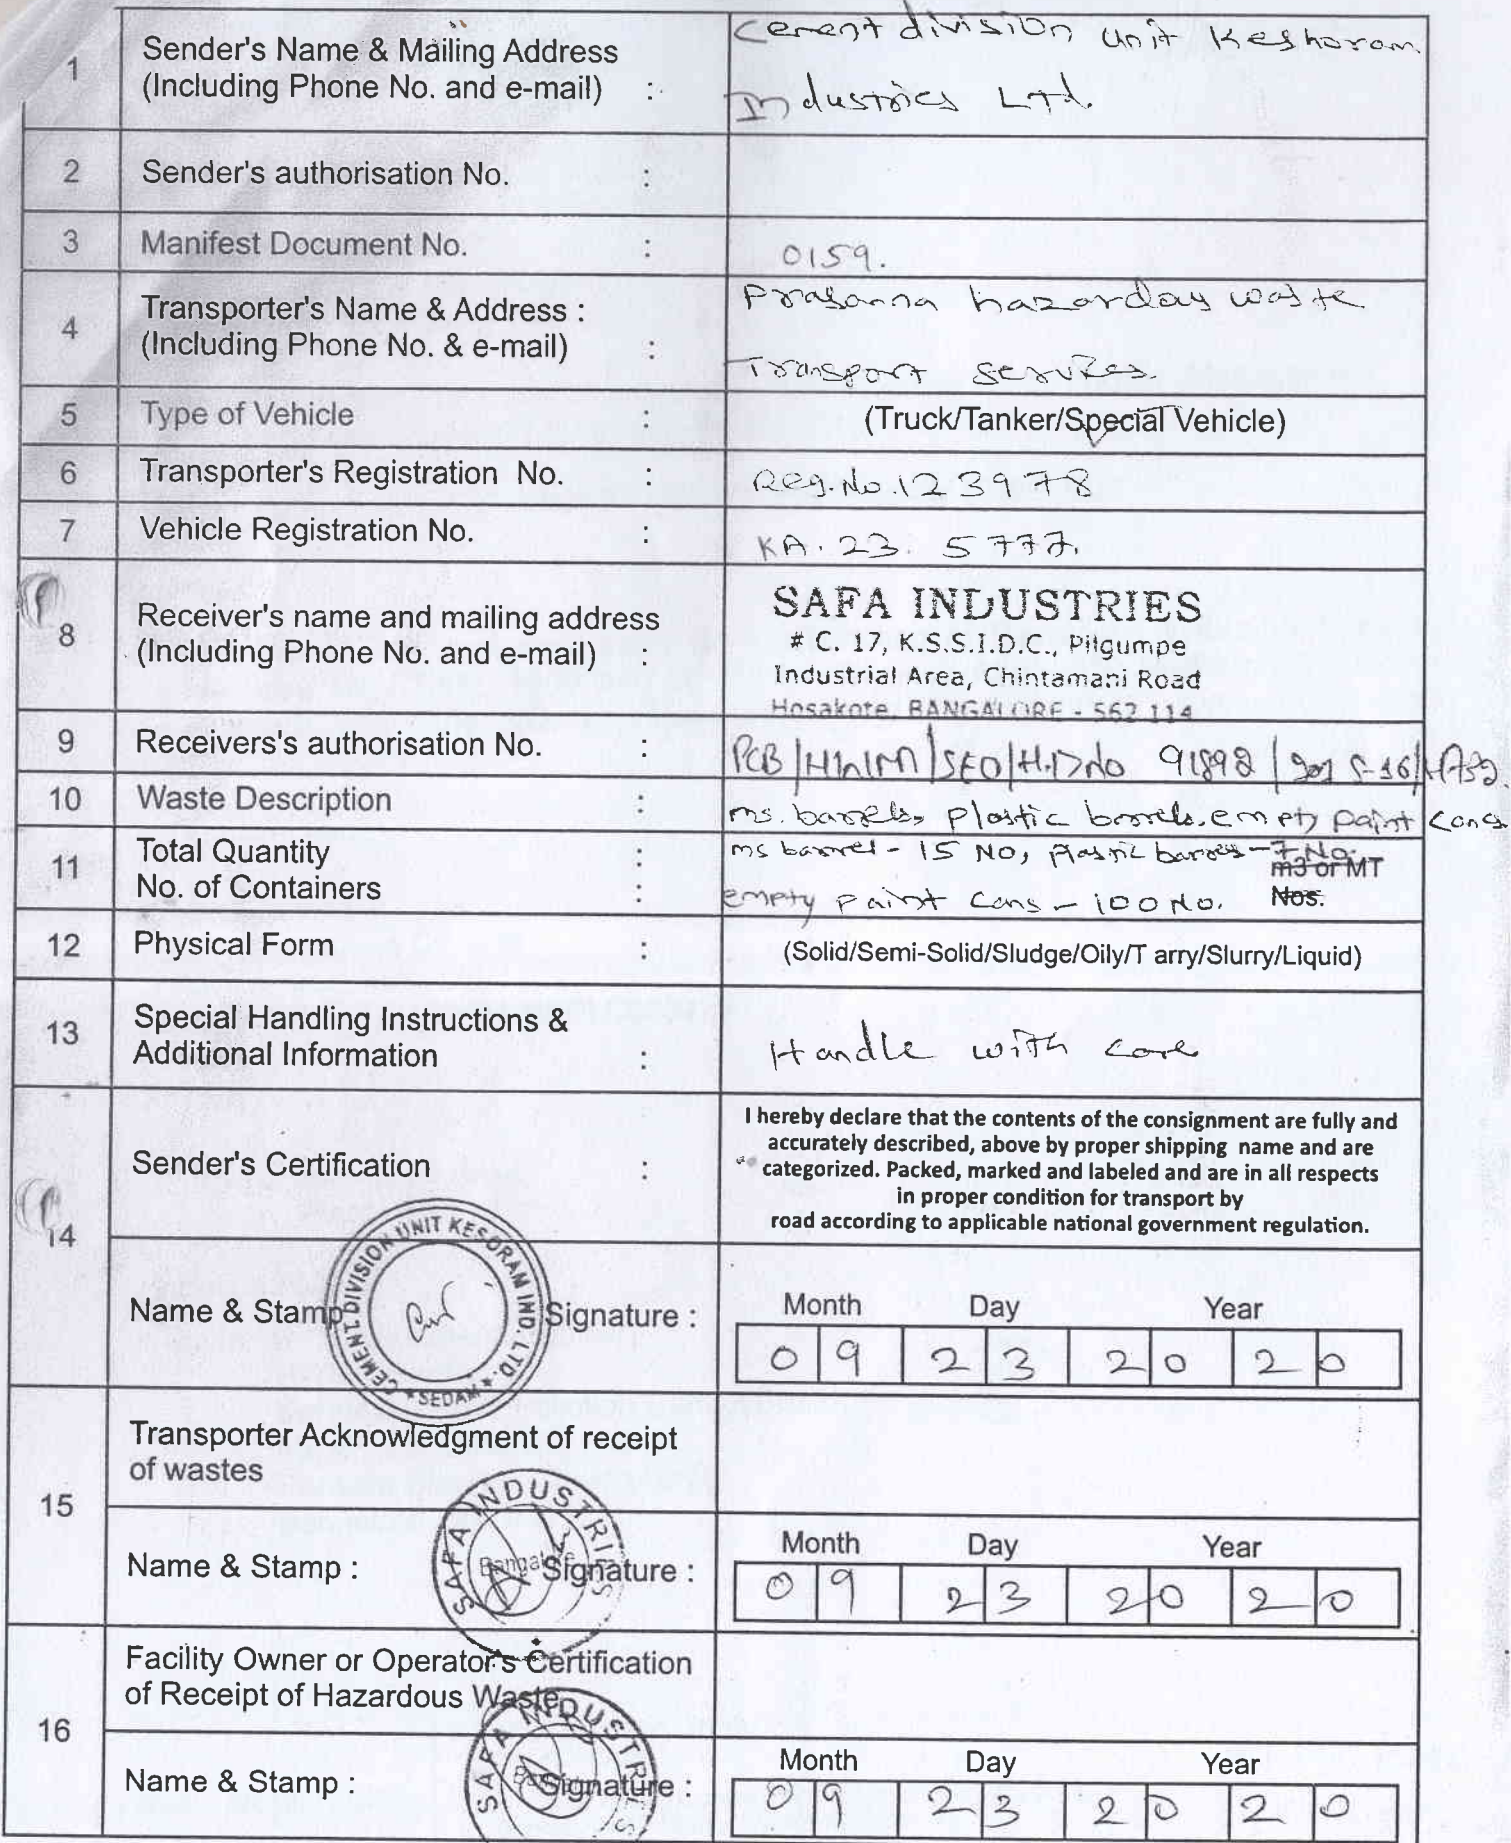 1 Sender's Name & Mailing Address
(Including Phone No. and e-mail) :
Cement division unit Keshoram
Industries Ltd.
2 Sender's authorisation No. :
3 Manifest Document No. : 0159.
4 Transporter's Name & Address :
(Including Phone No. & e-mail) :
Prasanna hazarday waste
Transport services.
5 Type of Vehicle : (Truck/Tanker/Special Vehicle)
6 Transporter's Registration No. : Reg.No.123978
7 Vehicle Registration No. : KA.23. 5777.
8 Receiver's name and mailing address
(Including Phone No. and e-mail) :
SAFA INDUSTRIES
# C. 17, K.S.S.I.D.C., Pilgumpe
Industrial Area, Chintamani Road
Hosakote, BANGALORE - 562 114
9 Receivers's authorisation No. : PCB/HWM/SEO/H.I.D No 91898
10 Waste Description : ms. barrels, plastic barrels, empty paint cans
11 Total Quantity
No. of Containers :
ms barrel - 15 No, plastic barrels - 7 No.
m3 or MT
empty paint cans - 100 No. Nos.
12 Physical Form : (Solid/Semi-Solid/Sludge/Oily/T arry/Slurry/Liquid)
13 Special Handling Instructions &
Additional Information :
Handle with care
14 Sender's Certification :
I hereby declare that the contents of the consignment are fully and
accurately described, above by proper shipping name and are
categorized. Packed, marked and labeled and are in all respects
in proper condition for transport by
road according to applicable national government regulation.
CEMENT DIVISION UNIT KESORAM IND. LTD.
* SEDAM *
Name & Stamp Signature :
Month Day Year
09 23 2020
15 Transporter Acknowledgment of receipt
of wastes
SAFA INDUSTRIES
Bangalore
Name & Stamp : Signature :
Month Day Year
09 23 2020
16 Facility Owner or Operator's Certification
of Receipt of Hazardous Waste
SAFA INDUSTRIES
Name & Stamp : Signature :
Month Day Year
09 23 2020